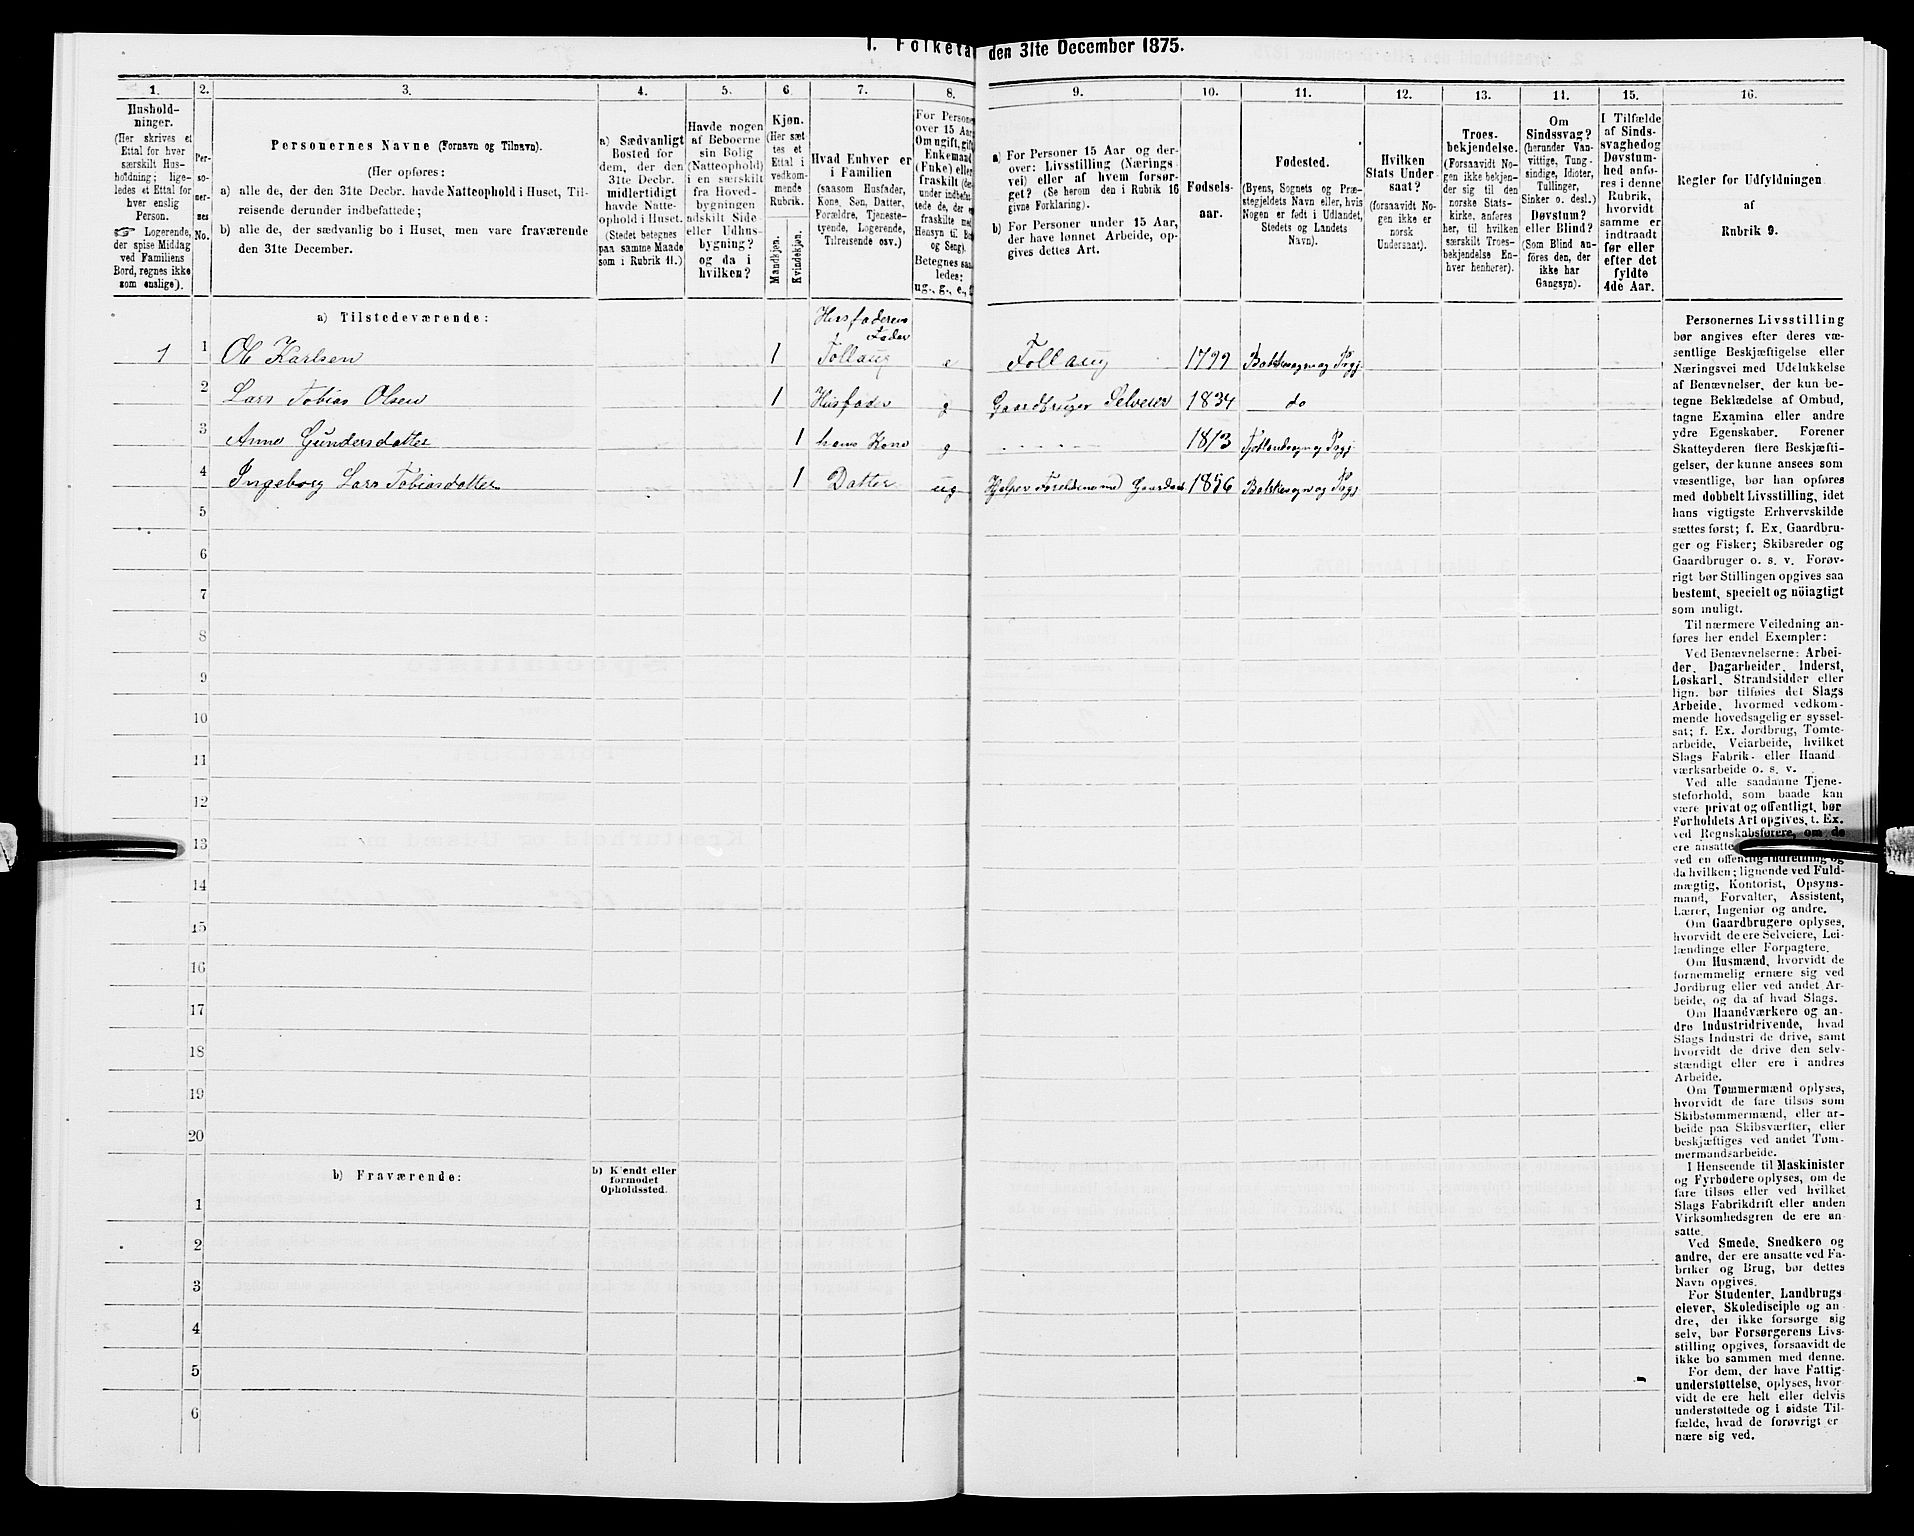 1. Folketæ den 31te December 1875.
1. 2. 3. 4. 5. 6. 7. 8. 9. 10. 11. 12. 13. 14. 15. 16.
Hushold-
ninger.
(Her skrives et
Ettal for hver
særskilt Hus-
holdning; lige-
ledes et Ettal for
hver enslig
Person.
☞ Logerende,
der spise Middag
ved Familiens
Bord, regnes ikke
som enslige).
Per-
so-
ner-
nes
No.
Personernes Navne (Fornavn og Tilnavn).
(Her opføres:
a) alle de, der den 31te Decbr. havde Natteophold i Huset, Til-
reisende derunder indbefattede;
b) alle de, der sædvanlig bo i Huset, men vare fraværende
den 31te December.
a) Sædvanligt
Bosted for
dem, der den
31te Decbr.
midlertidigt
havde Natte-
ophold i Huset.
(Stedet betegnes
paa samme Maade
som i Rubrik 11.)
Havde nogen
af Beboerne
sin Bolig
(Natteophold)
i en særskilt
fra Hoved-
bygningen
adskilt Side-
eller Udhus-
bygning?
og da i
hvilken?
Kjøn.
(Her sæt-
tes et
Ettal i
vedkom-
mende
Rubrik.
Mandkjøn.
Kvindekjøn.
Hvad Enhver er
i Familien
(saasom Husfader,
Kone, Søn, Datter,
Forældre, Tjeneste-
tyende, Logerende,
Tilreisende osv.).
For Persone
over 15 Aar
Om ugift, gift
Enkemand
(Enke) elle
fraskilt (de
under indbefat-
tede de, der e
fraskilte med
Hensyn til Bo
og Seng).
Betegnes saa
ledes:
ug., g., e., f
a) For Personer 15 Aar og der-
over: Livsstilling (Nærings
vei) eller af hvem forsør-
get? (Se herom den i Rubrik 16
givne Forklaring.)
b) For Personer under 15 Aar,
der have lønnet Arbeide, op-
gives dettes Art.
Fødsels-
aar.
Fødested.
(Byens, Sognets og Præ-
stegjeldets Navn eller, hvis
Nogen er født i Udlandet,
Stedets og Landets
Navn).
Hvilken
Stats Under
saat?
(forsaavidt No-
gen ikke er
norsk
Undersaat).
Troes-
bekjendelse.
(Forsaavidt No-
gen ikke bekjen-
der sig til den
norske Stats-
kirke, anføres
her, til hvilken
særskilt Troes-
bekjendelse En-
hver henhører).
Om
Sindssvag?
(herunder Van-
vittige, Tung-
sindige, Idioter,
Tullinger,
Sinker o. desl.)
Døvstum?
eller Blind?
(Som Blind an-
føres den, der
ikke har
Gangsyn).
I Tilfælde
af Sinds-
svaghed og
Døvstum-
hed anfø-
res i denne
Rubrik,
hvorvidt
samme er
indtraadt
før eller
efter det
fyldte
4de Aar.
Regler for Udfyldningen
af
Rubrik 9.
a) Tilstedeværende:
1 1 Ole Karlsen 1 Husfaderens Fader Follaug e Follaug 1799
2 Lars Tobias Olsen 1 Husfader g Gaardbruger Selveier 1834 do
3 Anne Gundersdatter 1 hans Kone g 1813
4 Ingeborg Lars Tobiasdatter 1 Datter ug Hjelper Foreldrene med 1856
5
6
7
8
9
10
11
12
13
14
15
16
17
18
19
20
b) Fraværende:
b) Kjendt eller
formodet
Opholdssted.
1
2
3
4
5
6
Personernes Livsstilling
bør angives efter deres væ-
sentlige Beskjæftigelse eller
Næringsvei med Udelukkelse
af Benævnelser, der kun be-
tegne Beklædelse af Ombud,
tagne Examina eller andre
ydre Egenskaber. Forener
Skatteyderen flere Beskjæfti-
gelser, der kunne ansees som
væsentlige, bør han opføres
med dobbelt Livsstilling, idet
hans vigtigste Erhvervskilde
sættes først; f. Ex. Gaardbru-
ger og Fisker; Skibsreder og
Gaardbruger o. s. v. Forøv-
rigt bør Stillingen opgives saa
bestemt, specielt og nöiagtigt
som muligt.
Til nærmere Veiledning an-
føres her endel Exempler:
Ved Benævnelserne: Arbei-
der, Dagarbeider, Inderst,
Løskarl, Strandsidder eller
lign. bør tilføies det Slags
Arbeide, hvormed vedkom-
mende hovedsagelig er syssel-
sat; f. Ex. Jordbrug, Tomte-
arbeide, Veiarbeide, hvilket
Slags Fabrik- eller Haand
værksarbeide o. s. v.
Ved alle saadanne Tjene-
steforhold, som baade kan
være privat og offentligt, bør
Forholdets Art opgives, t. Ex.
ved Regnskabsførere, om de
ere ansatte
ved en offentlig Indretning og
da hvilken; lignende ved Fuld-
mægtig, Kontorist, Opsyns-
mand, Forvalter, Assistent,
Lærer, Ingeniør og andre.
Om Gaardbrugere oplyses,
hvorvidt de ere Selveiere, Lei-
lændinge eller Forpagtere.
Om Husmænd, hvorvidt de
fornemmelig ernære sig ved
Jordbrug eller ved andet Ar-
beide, og da af hvad Slags.
Om Haandværkere og an-
dre Industridrivende, hvad
Slags Industri de drive, samt
hvorvidt de drive den selv-
stændigt eller ere i andres
Arbeide.
Om Tømmermænd oplyses,
hvorvidt de fare tilsøs som
Skibstømmermænd, eller ar-
beide paa Skibsværfter, eller
beskjæftiges ved andet Tøm-
mermandsarbeide.
I Henseende til Maskinister
og Fyrbødere oplyses, om de
fare tilsøs eller ved hvilket
Slags Fabrikdrift eller anden
Virksomhedsgren de ere an-
satte.
Ved Smede, Snedkere og
andre, der ere ansatte ved Fa-
briker og Brug, bør dettes
Navn opgives.
For Studenter, Landbrugs
elever, Skoledisciple og an-
dre, der ikke forsørge sig
selv, bør Forsørgerens Livs-
stilling opgives, forsaavidt de
ikke bo sammen med denne.
For dem, der have Fattig-
understøttelse, oplyses, hvor-
vidt de ere helt eller delvis
understøttede og i sidste Til-
fælde, hvad de forøvrigt er
nære sig ved.